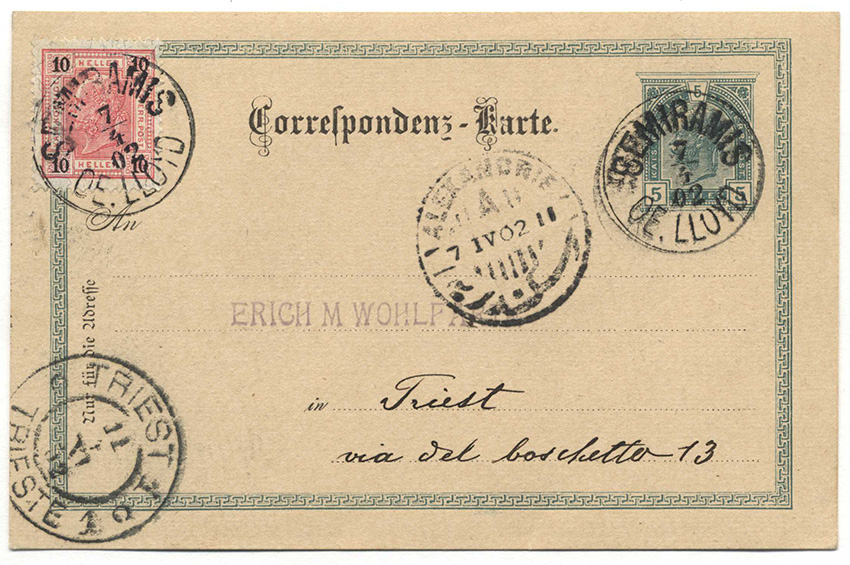 10 10
HELLER
10 10
SEMIRAMIS
7/4
02
OE. LLOYD
Correspondenz-Karte.
5
5 5
SEMIRAMIS
7/4
02
OE. LLOYD
ALEXANDRIE
A
7 IV 02 11
An
ERICH M WOHLF
Nur für die Adresse
in Triest
via del boschetto 13
TRIEST
11
TRIESTE